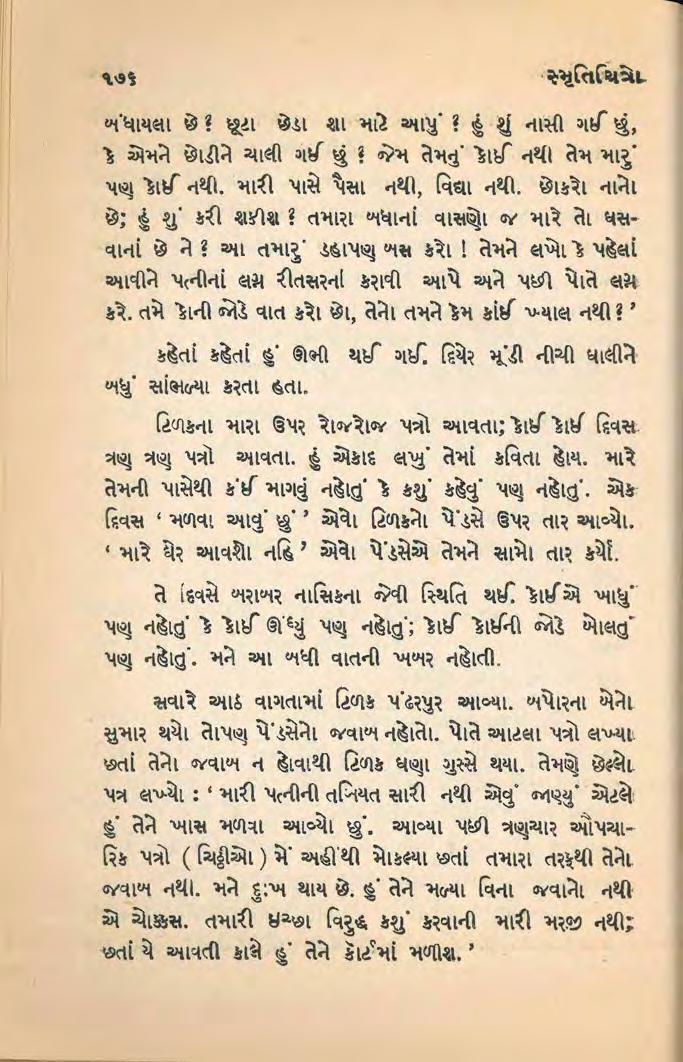 ૧૭૬ સ્મૃતિચિત્રો
બંધાયલા છે? છૂટા છેડા શા માટે આપું? હું શું નાસી ગઈ છું,
કે એમને છોડીને ચાલી ગઈ છું? જેમ તેમનું કોઈ નથી તેમ મારું
પણ કોઈ નથી. મારી પાસે પૈસા નથી, વિદ્યા નથી. છોકરો નાનો
છે; હું શું કરી શકીશ? તમારા બધાનાં વાસણો જ મારે તો ઘસ-
વાનાં છે ને? આ તમારું ડહાપણ બસ કરો! તેમને લખો કે પહેલાં
આવીને પત્નીનાં લગ્ન રીતસરનાં કરાવી આપે અને પછી પોતે લગ્ન
કરે. તમે કોની જોડે વાત કરો છો, તેનો તમને કેમ કાંઈ ખ્યાલ નથી?’
કહેતાં કહેતાં હું ઊભી થઈ ગઈ. દિયેર મૂંડી નીચી ઘાલીને
બધું સાંભળ્યા કરતા હતા.
ટિળકના મારા ઉપર રોજરોજ પત્રો આવતા; કોઈ કોઈ દિવસ
ત્રણ ત્રણ પત્રો આવતા. હું એકાદ લખું તેમાં કવિતા હોય. મારે
તેમની પાસેથી કંઈ માગવું નહોતું કે કશું કહેવું પણ નહોતું. એક
દિવસ ‘મળવા આવું છું’ એવો ટિળકનો પેંડસે ઉપર તાર આવ્યો.
‘મારે ઘેર આવશો નહિ’ એવો પેંડસેએ તેમને સામો તાર કર્યો.
તે દિવસે બરાબર નાસિકના જેવી સ્થિતિ થઈ. કોઈએ ખાધું
પણ નહોતું કે કોઈ ઊંઘ્યું પણ નહોતું; કોઈ કોઈની જોડે બોલતું
પણ નહોતું. મને આ બધી વાતની ખબર નહોતી.
સવારે આઠ વાગતામાં ટિળક પંઢરપુર આવ્યા. બપોરના બેનો
સુમાર થયો તોપણ પેંડસેનો જવાબ નહોતો. પોતે આટલા પત્રો લખ્યા
છતાં તેનો જવાબ ન હોવાથી ટિળક ઘણા ગુસ્સે થયા. તેમણે છેલ્લો
પત્ર લખ્યો : ‘મારી પત્નીની તબિયત સારી નથી એવું જાણ્યું એટલે
હું તેને ખાસ મળવા આવ્યો છું. આવ્યા પછી ત્રણચાર ઔપચા-
રિક પત્રો (ચિઠ્ઠીઓ) મેં અહીંથી મોકલ્યા છતાં તમારા તરફથી તેનો
જવાબ નથી. મને દુઃખ થાય છે. હું તેને મળ્યા વિના જવાનો નથી
એ ચોક્કસ. તમારી ઇચ્છા વિરુદ્ધ કશું કરવાની મારી મરજી નથી;
છતાં યે આવતી કાલે હું તેને કોર્ટમાં મળીશ.’